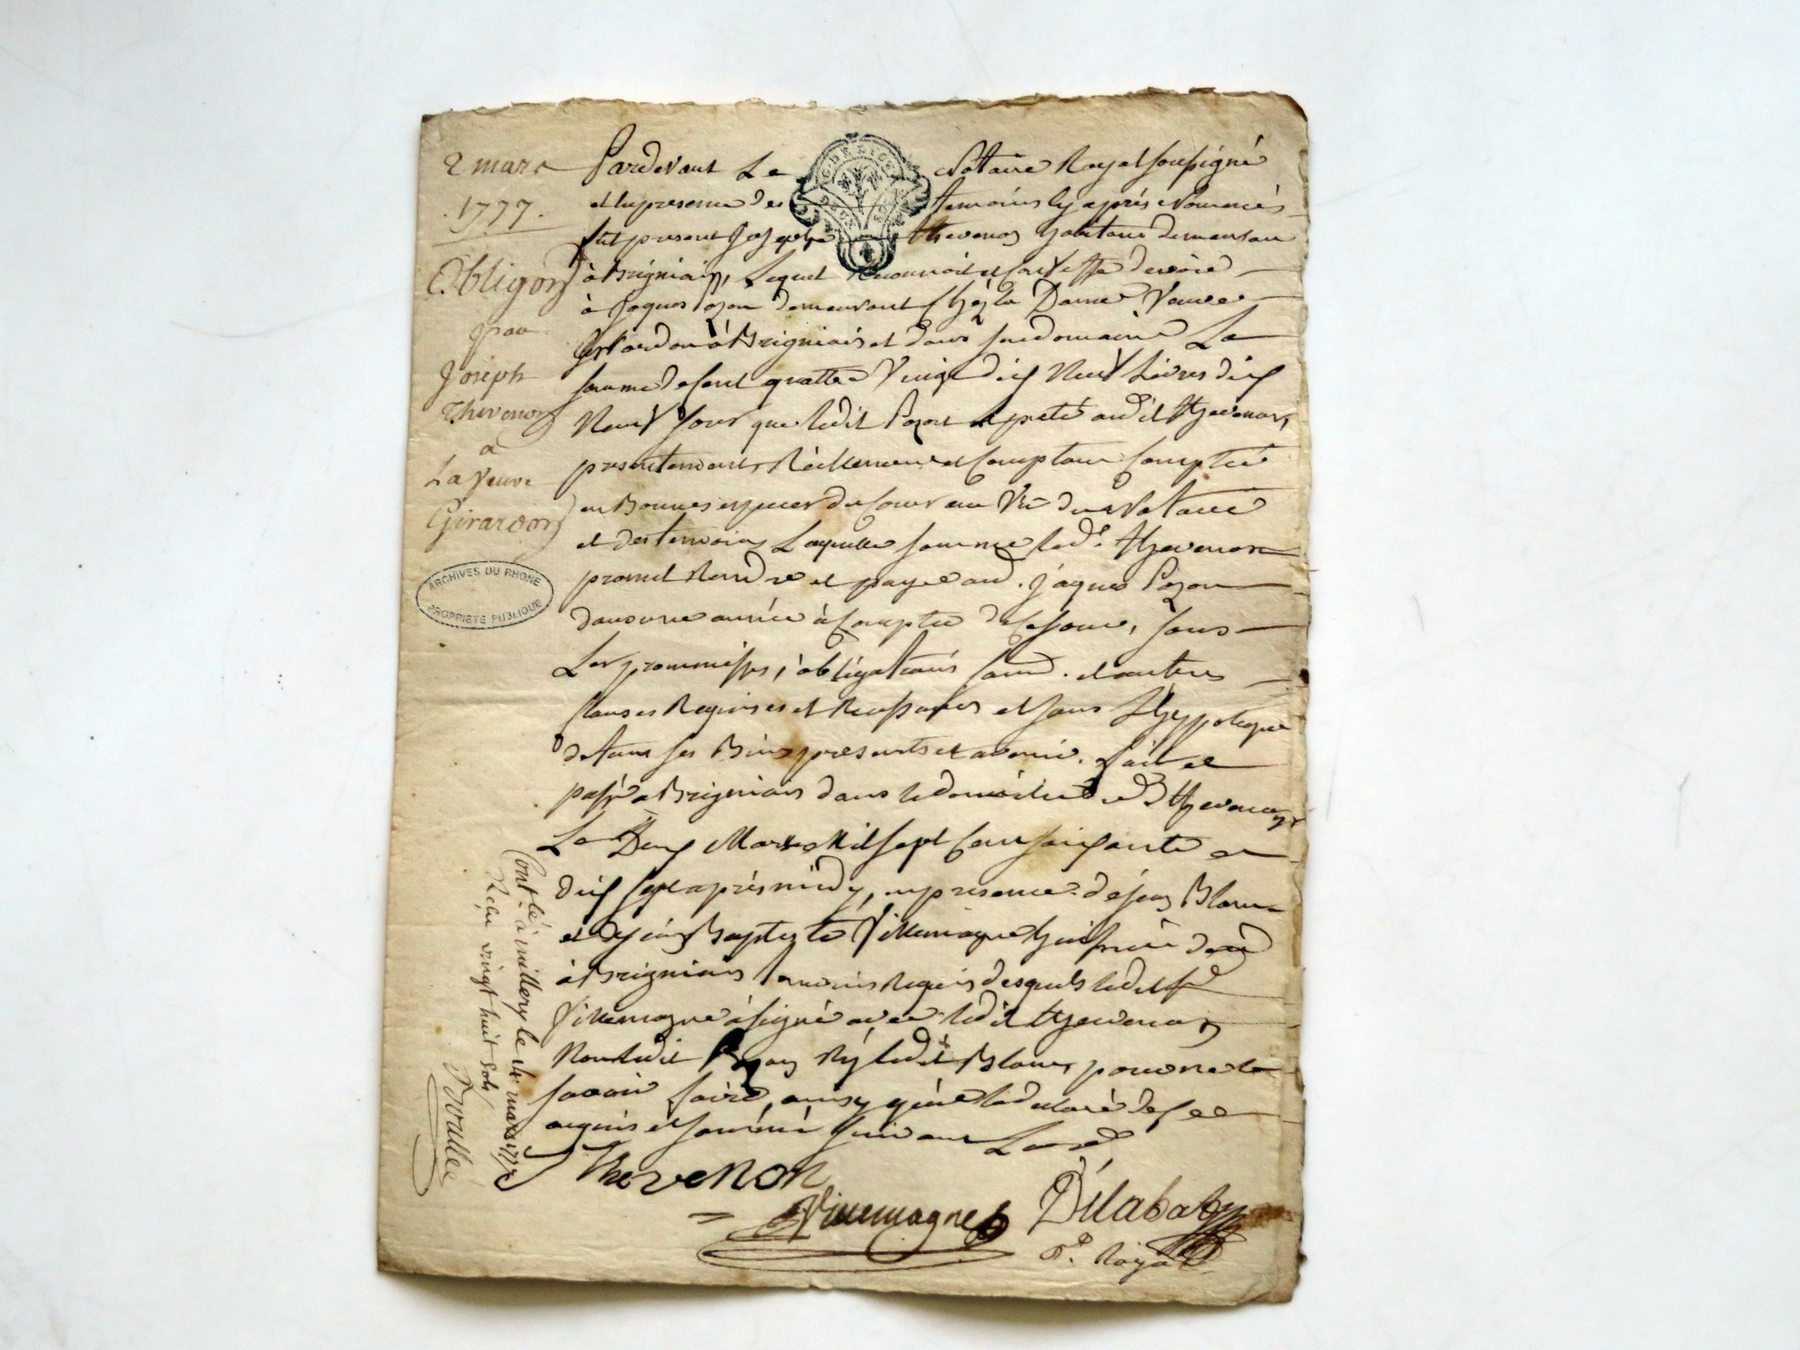 2 mars
1777.
Obligon
par
Joseph
Thevenon
à
La Veuve
Girardon
ARCHIVES DU RHONE
PROPRIETE PUBLIQUE
Pardevant Le Notaire Royal soussigné
et en presence des temoins cy après nommés
fut present Joseph Thevenon habitant demeurant
à Brigniais, Lequel reconnoit et confesse devoir
à Jaques Pozon demeurant chéz la Dame Veuve
Girardon à Brigniais et dans son domaine La
somme de cent quatre vingt dix neuf Livres dix
neuf sous que ledit Pozon a preté audit Thevenon,
presentement, réellement et comptant compté
en bonnes especes du cours au vu du Notaire
et des temoins Laquelle somme led. Thevenon
promet rendre et payer aud. Jaques Pozon
dans une année à compter de ce jour, sous
Les promesses, obligations, et autres
clauses requises et et sous l'hyppoteque
de tous ses Biens presents et avenir. fait et
passé a Brigniais dans le domicile dud Thevenon
Le Deux Mars Mil sept cent soixante et
dix sept après midy, en presence de Jean Blanc
et de Jean Baptiste Villemagne
à Brigniais temoins requis desquels ledit
Villemagne à signé avec ledit Thevenon
Non ledit Pozon ny ledit Blanc pour ne le
savoir faire, ainsy qu'ils l'ont declaré de ce
enquis et sommés suivant
Thevenon
Villemagne
Delabaty
Royal
Cont. lé à millery le mars 1777
Reçu vingt huit sols